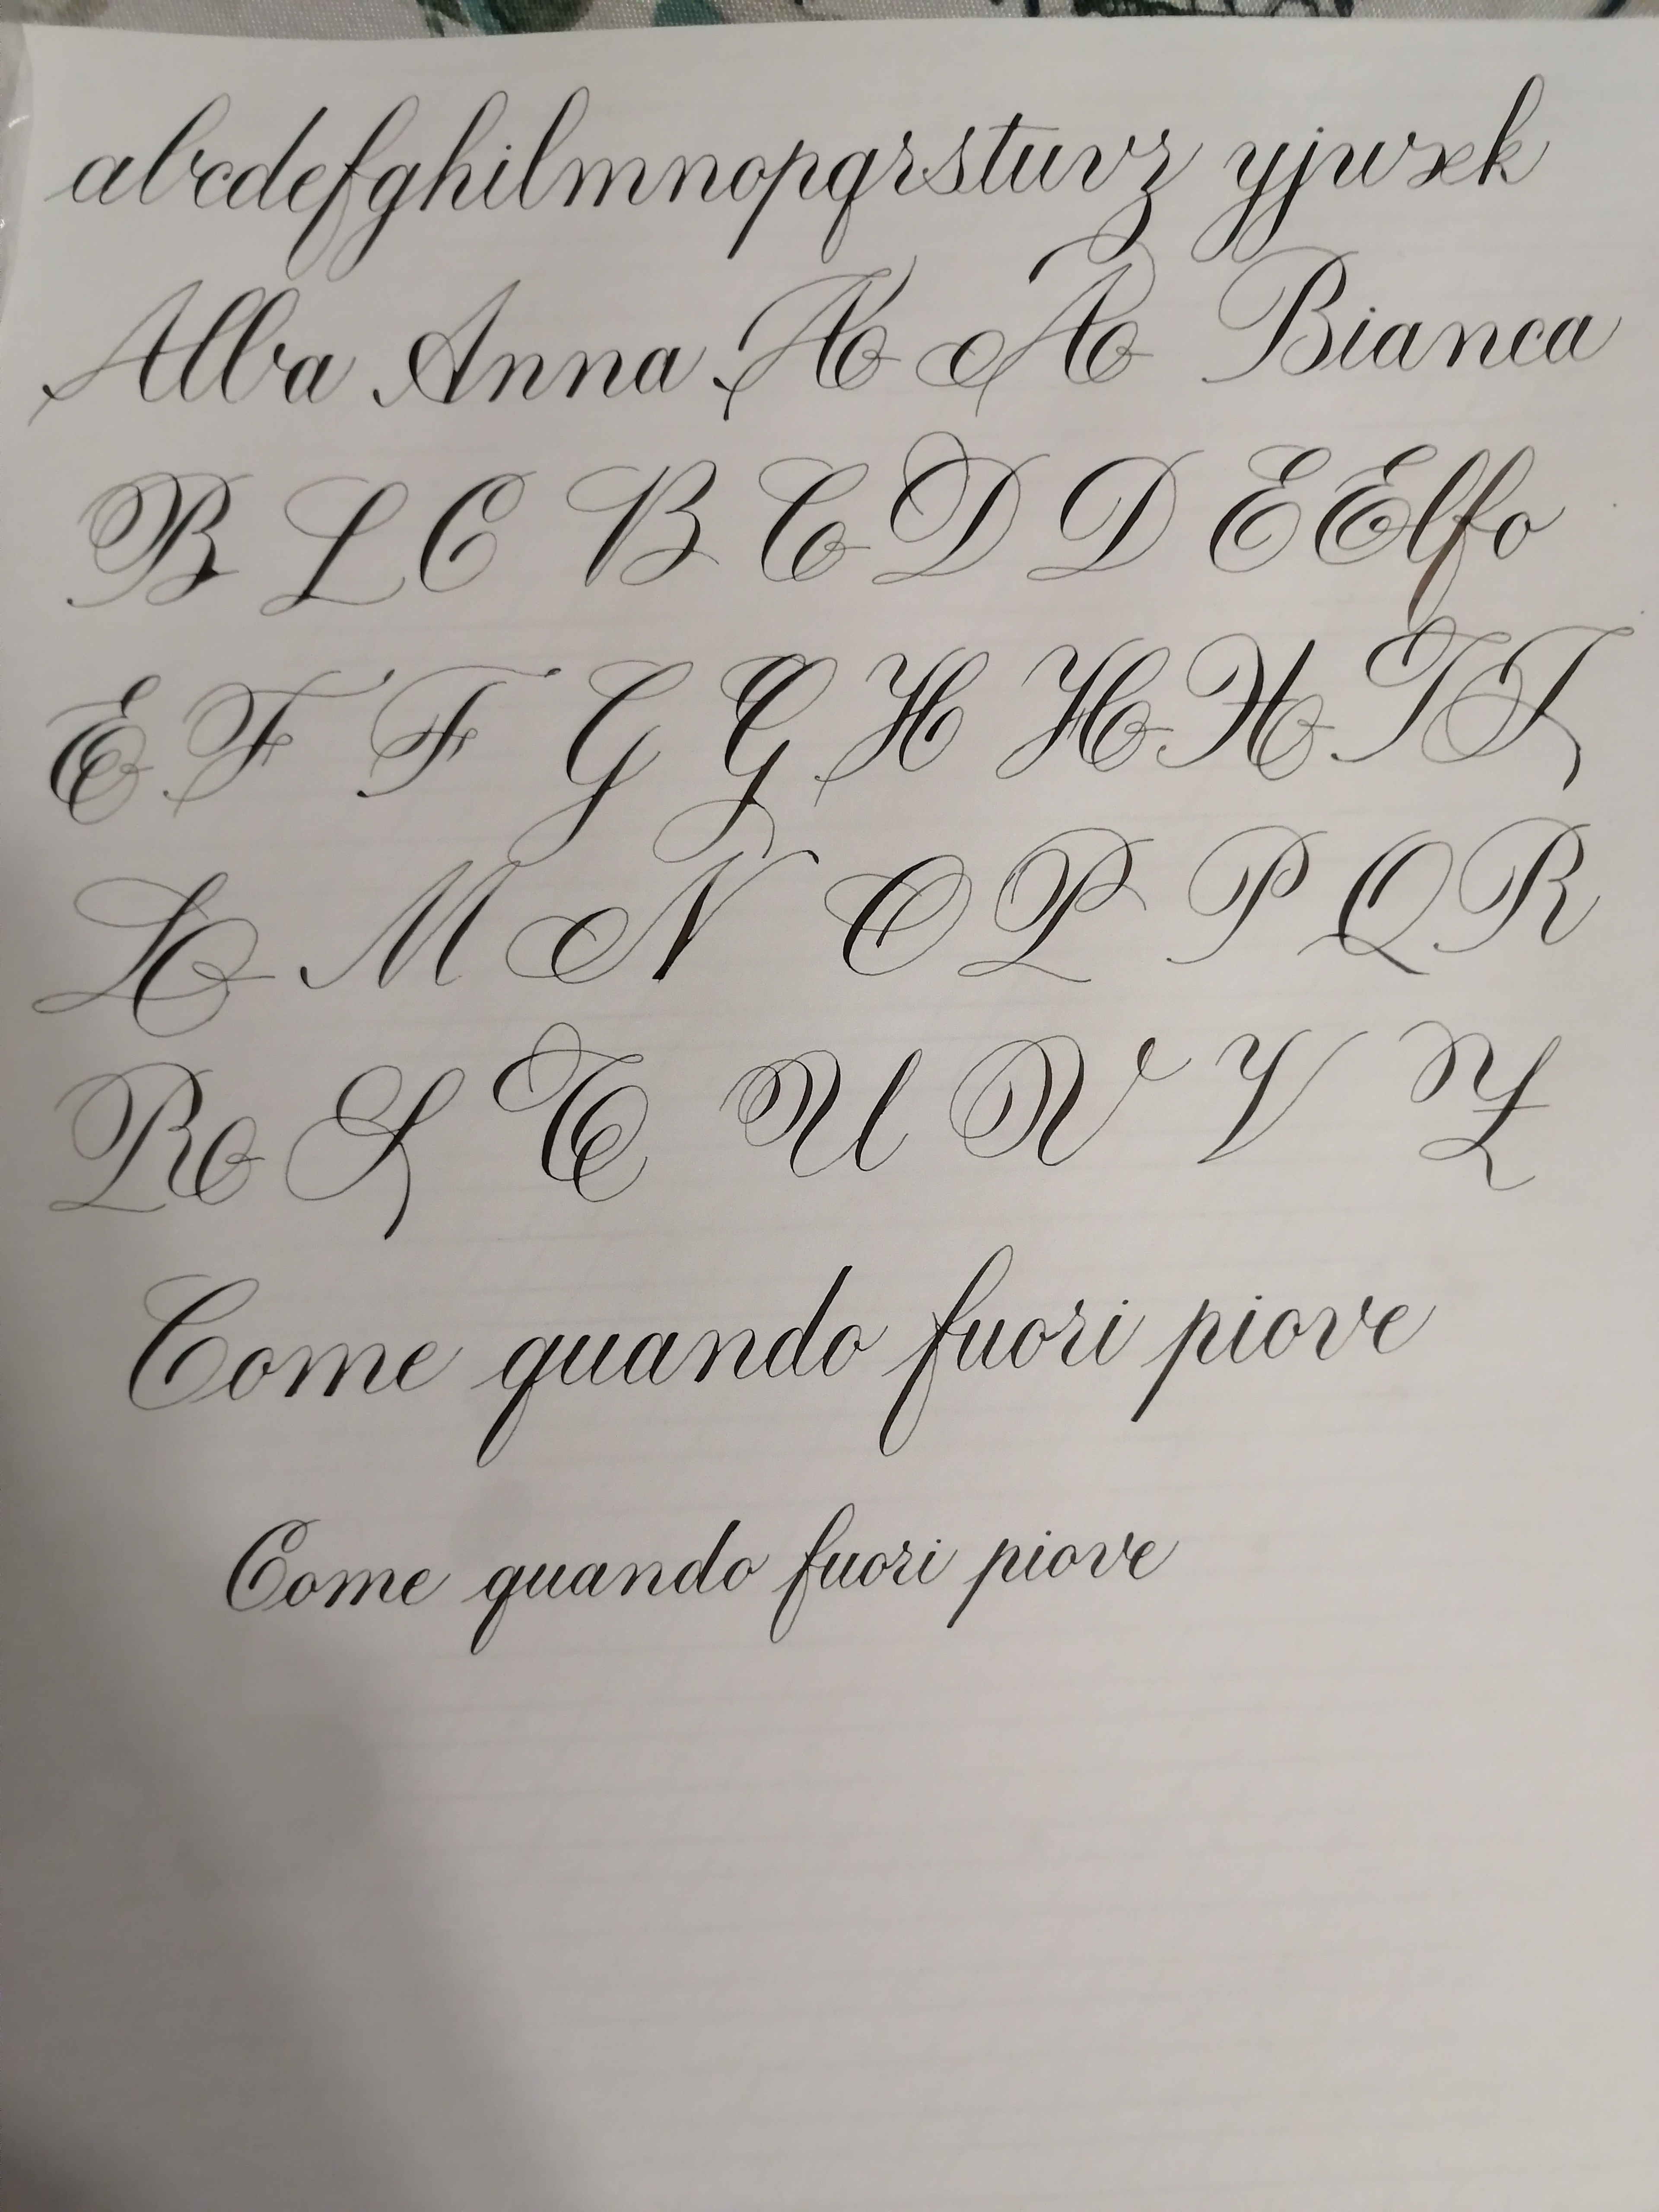 abcdefghilmnopqrstuvz yjwxk
Alba Anna A A Bianca
B L C B C D D E Elfo
E F F G G H H H I I
L M N O P P Q R
R S T U V V Z
Come quando fuori piove
Come quando fuori piove